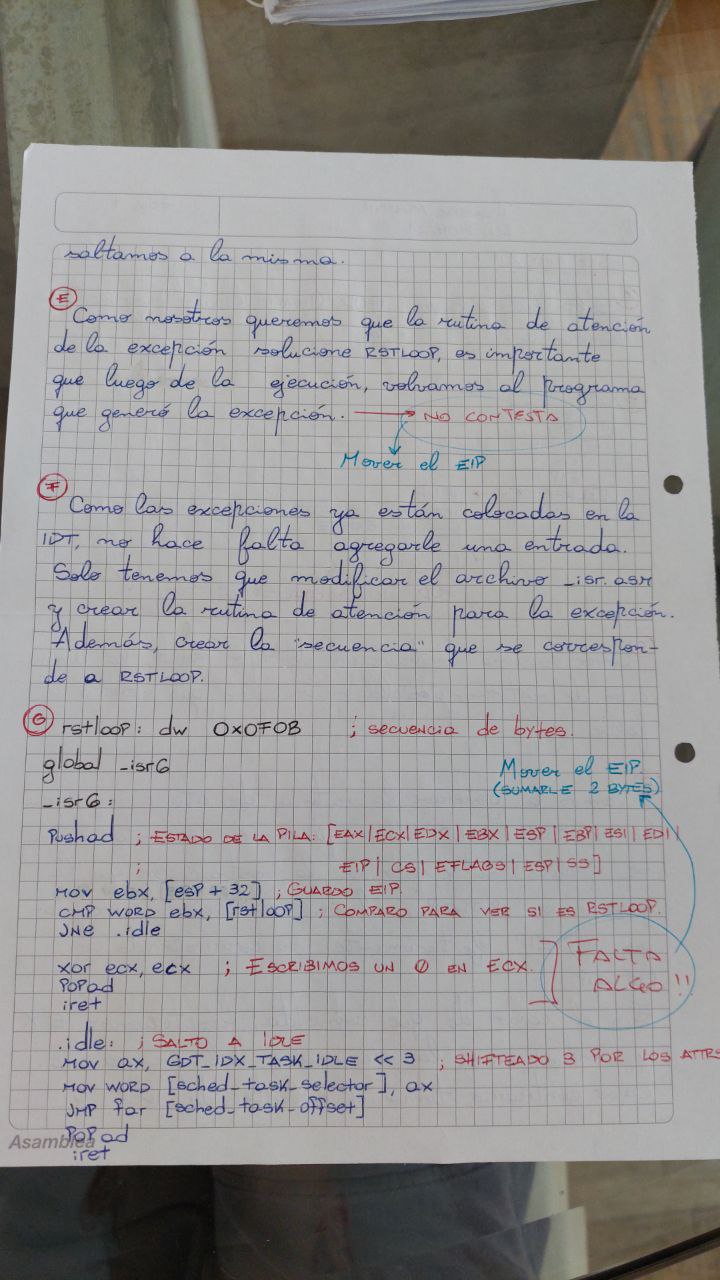 saltamos a la misma.
E
Como nosotros queremos que la rutina de atención
de la excepción solucione RSTLOOP, es importante
que luego de la ejecución, volvamos al programa
que generó la excepción. → NO CONTESTA
Mover el EIP
F
Como las excepciones ya están colocadas en la
IDT, no hace falta agregarle una entrada.
Solo tenemos que modificar el archivo _isr.asm
y crear la rutina de atención para la excepción.
Además, crear la "secuencia" que se correspon-
de a RSTLOOP.
G rstloop: dw 0x0F0B ; secuencia de bytes.
global _isr6
Mover el EIP.
(SUMARLE 2 BYTES)
_isr6:
Pushad ; ESTADO DE LA PILA: [EAX|ECX|EDX|EBX|ESP|EBP|ESI|EDI|
; EIP|CS|EFLAGS|ESP|SS]
MOV ebx, [esp + 32] ; GUARDO EIP.
CMP WORD ebx, [rstloop] ; COMPARO PARA VER SI ES RSTLOOP.
JNe .idle
xor ecx, ecx ; ESCRIBIMOS UN 0 EN ECX.
POPad
iret
FALTA
ALGO!!
.idle: ; SALTO A IDLE
MOV ax, GDT_IDX_TASK_IDLE << 3 ; SHIFTEADO 3 POR LOS ATTRS
MOV WORD [sched_task_selector], ax
JMP far [sched_task_offset]
POPad
iret
Asamblea